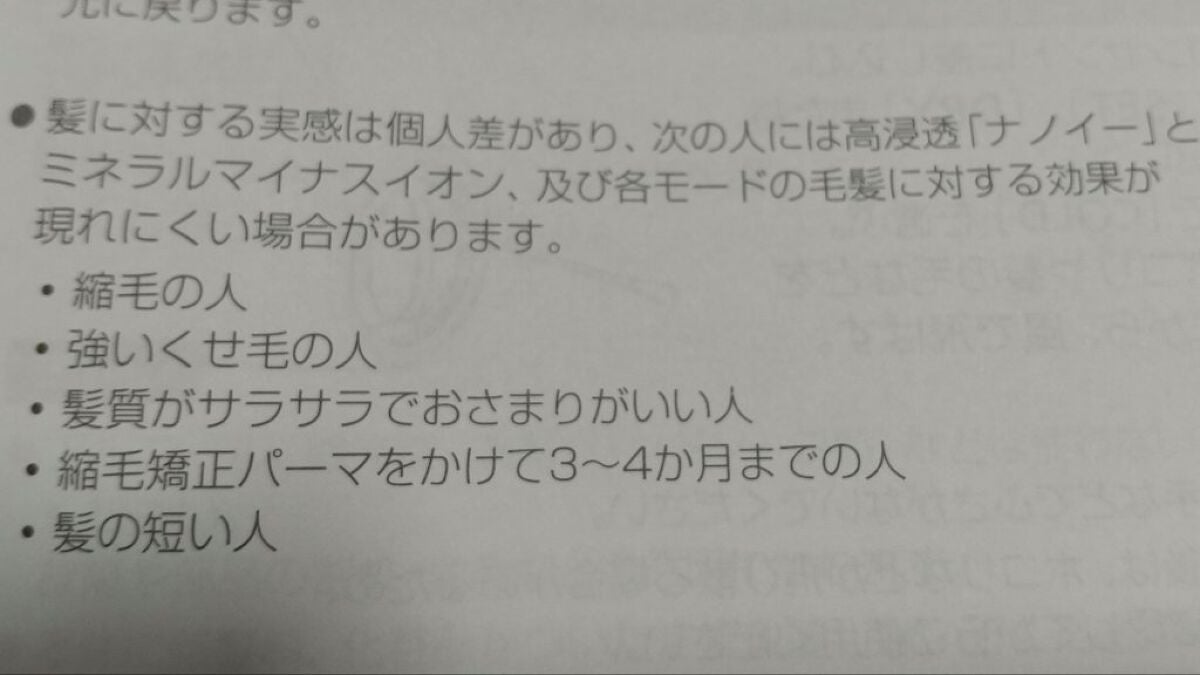 元に戻ります。
●髪に対する実感は個人差があり、次の人には高浸透「ナノイー」と
ミネラルマイナスイオン、及び各モードの毛髪に対する効果が
現れにくい場合があります。
・縮毛の人
・強いくせ毛の人
・髪質がサラサラでおさまりがいい人
・縮毛矯正パーマをかけて3〜4か月までの人
・髪の短い人